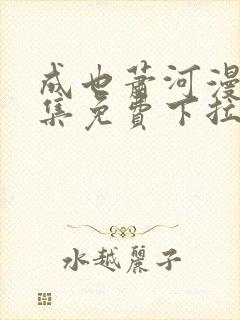 成也萧河漫
集免費下拉
水越麗子